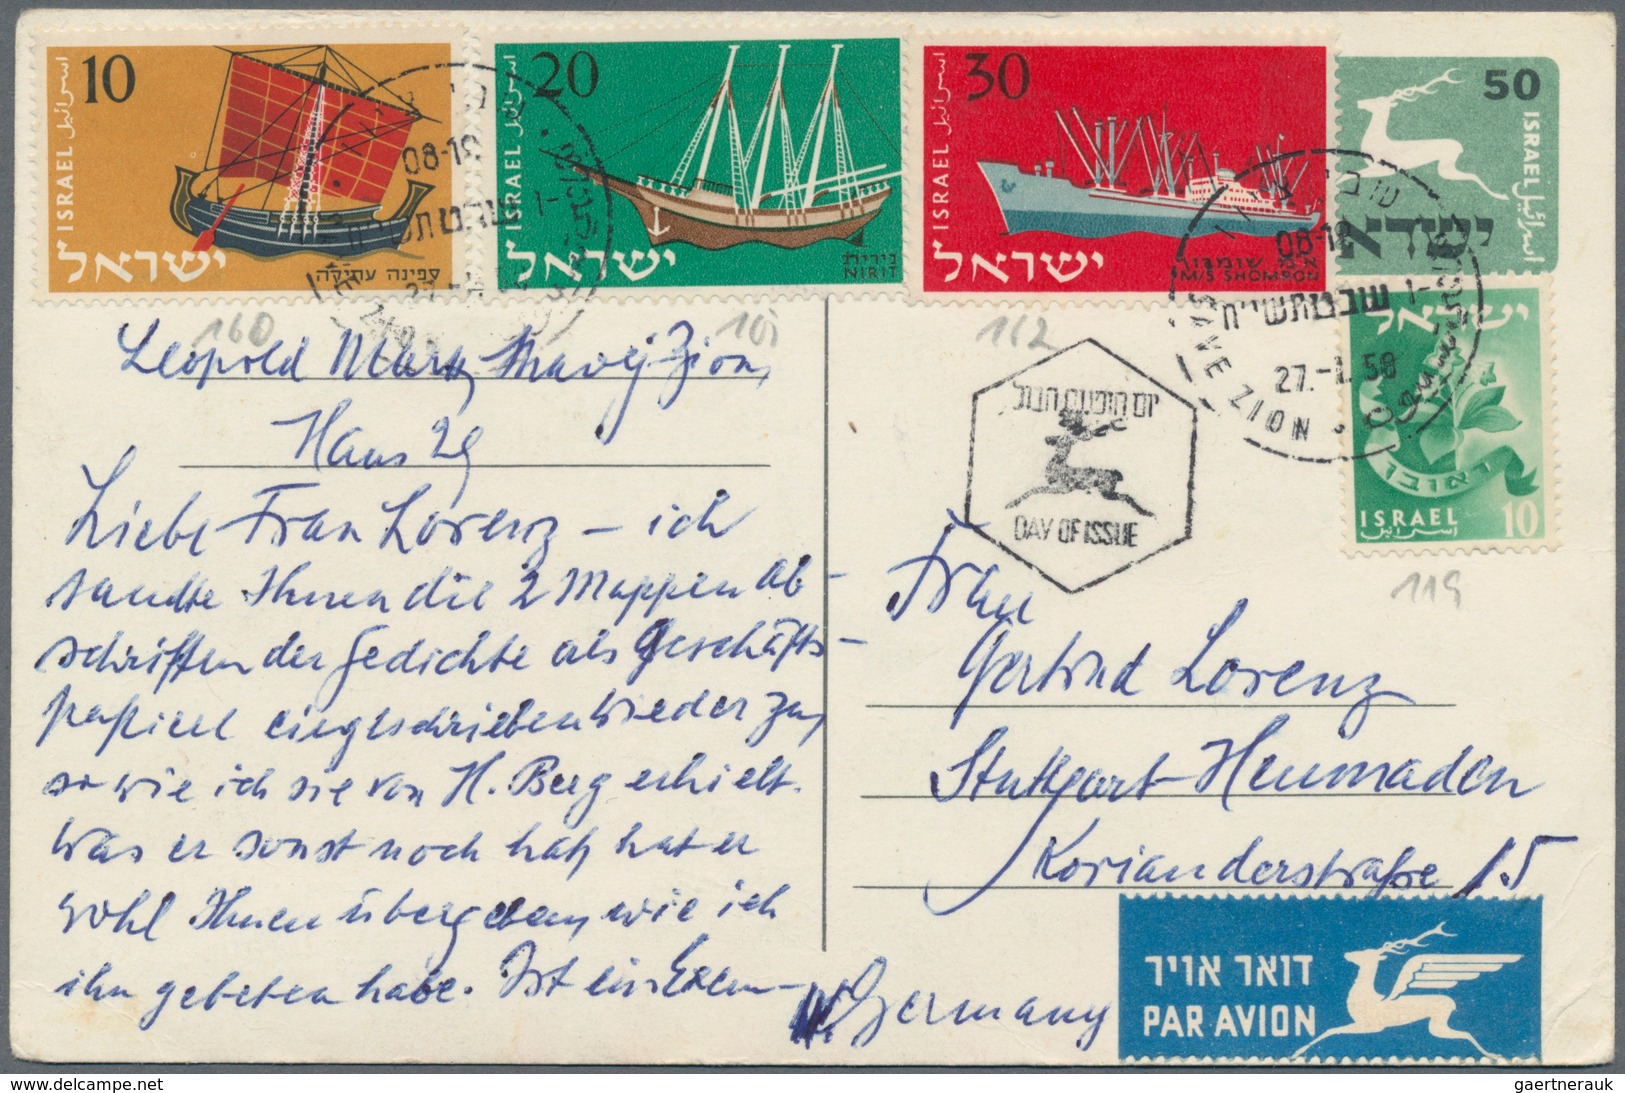 10
اسرائيل ISRAEL
ישראל
ספינה עתיקה
20
اسرائيل ISRAEL
ישראל
נירית
NIRIT
30
اسرائيل ISRAEL
ישראל
א״מ שומרון
M/S SHOMRON
50
ISRAEL اسرائيل
ישראל
08-18
08-18
שבט תשי״ח
27.-1.58
SHAVE ZION
ישראל
ראובן
ISRAEL 10
اسرائيل
יום הופעת הבול
DAY OF ISSUE
160
161
162
119
Leopold Marx, Shavej-Zion,
Haus 29
Liebe Frau Lorenz – ich
sandte Ihnen die 2 Mappen Ab-
schriften der Gedichte als Geschäfts-
papiere eingeschrieben wieder zu,
so wie ich sie von H. Berg erhielt.
Was er sonst noch hat, hat er
wohl Ihnen übergeben, wie ich
ihn gebeten habe. Ist ein Exem-
Frau
Gertrud Lorenz
Stuttgart-Heumaden
Korianderstraße 15
Germany
דואר אויר
PAR AVION
delcampe.net
gaertnerauk